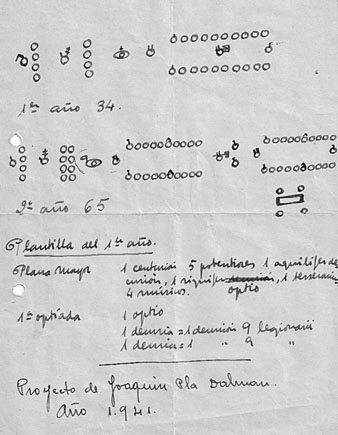 1er año 34.
2º año 65
Plantilla del 1er año.
Plana Mayor 1 centurión 5 potentiores 1 aquilifer de-
curión, 1 signifer, 1 tesserario
optio
4 músicos.
1ª optíada 1 optio
1 decuria = 1 decurión 9 legionarii
1 decuria = 1 " 9 "
Proyecto de Joaquin Pla Dalmau.
Año 1.941.